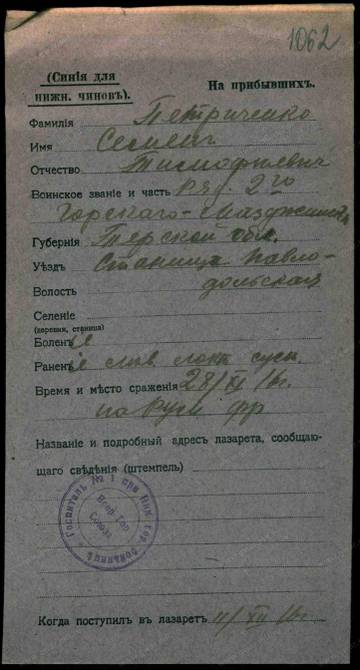 1062
(Синія для нижн. чиновъ).
На прибывшихъ.
Фамилія Петриченко
Имя Семенъ
Отчество Тимофѣевич
Воинское званіе и часть Ряд. 2го
Горскаго-
Губернія Терской обл.
Уѣздъ Станица Павло-
Волость дольская
Селеніе
(деревня, станица)
Боленъ
Раненъ лѣв. лок. суст.
Время и мѣсто сраженія 28/XI 16г.
на Рум фр
Названіе и подробный адресъ лазарета, сообщаю-
щаго свѣдѣнія (штемпель)
Госпиталь № 1 при Ник. Гор. Больницѣ
Всер. Гор. Союза
Когда поступилъ въ лазаретъ 11/XII 16г